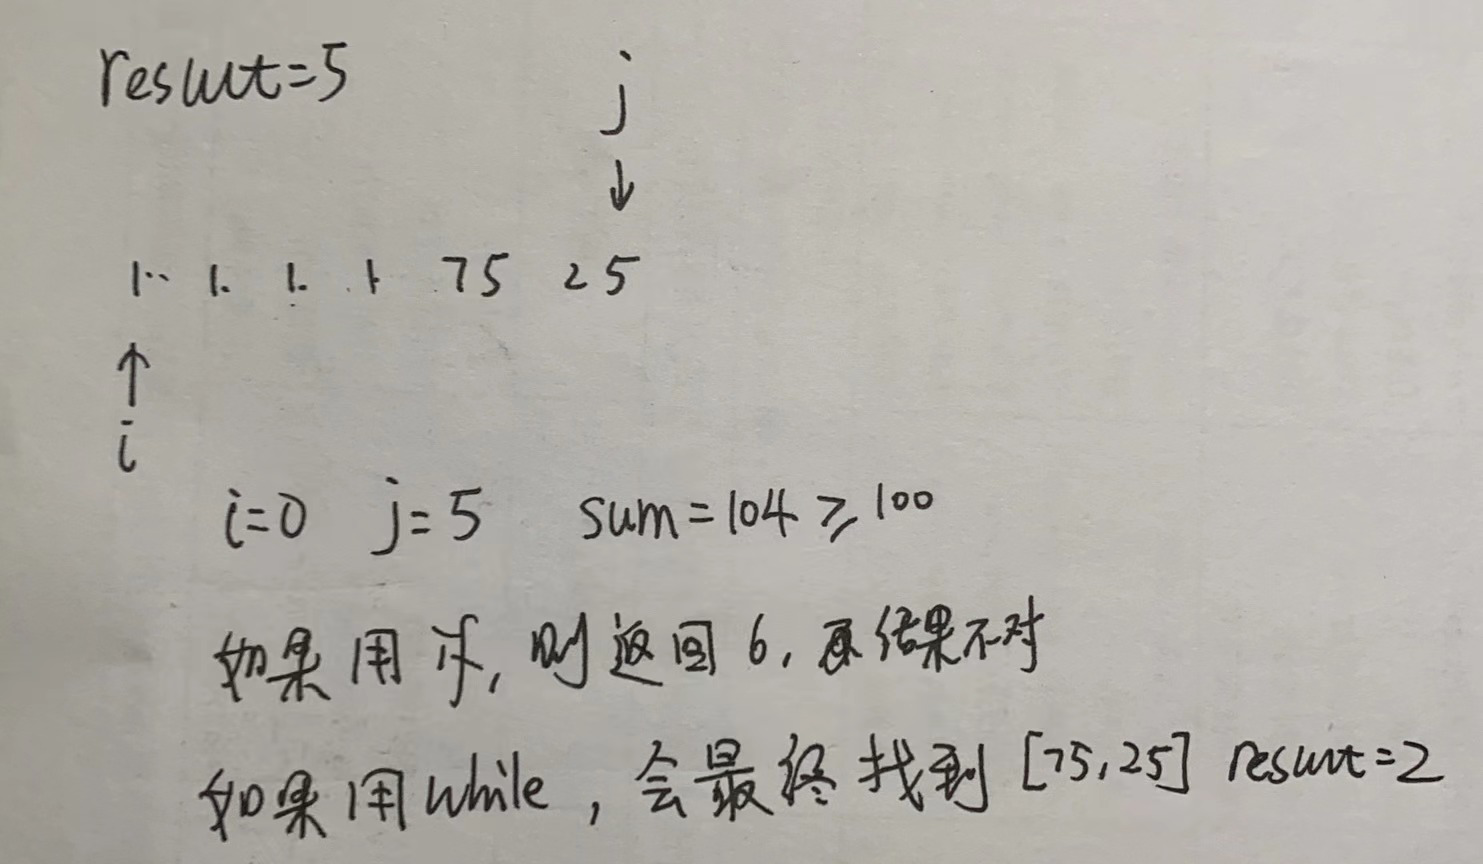 result=5
j
↓
1 1 1 1 75 25
↑
i
i=0 j=5 sum=104≥100
如果用if,则返回6,结果不对
如果用while,会最终找到[75,25] result=2